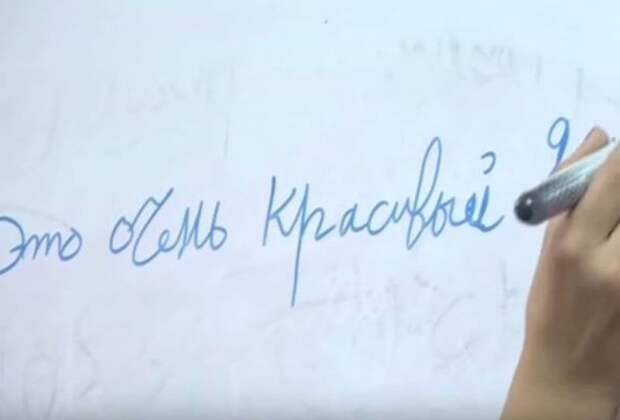 Это очень красивый